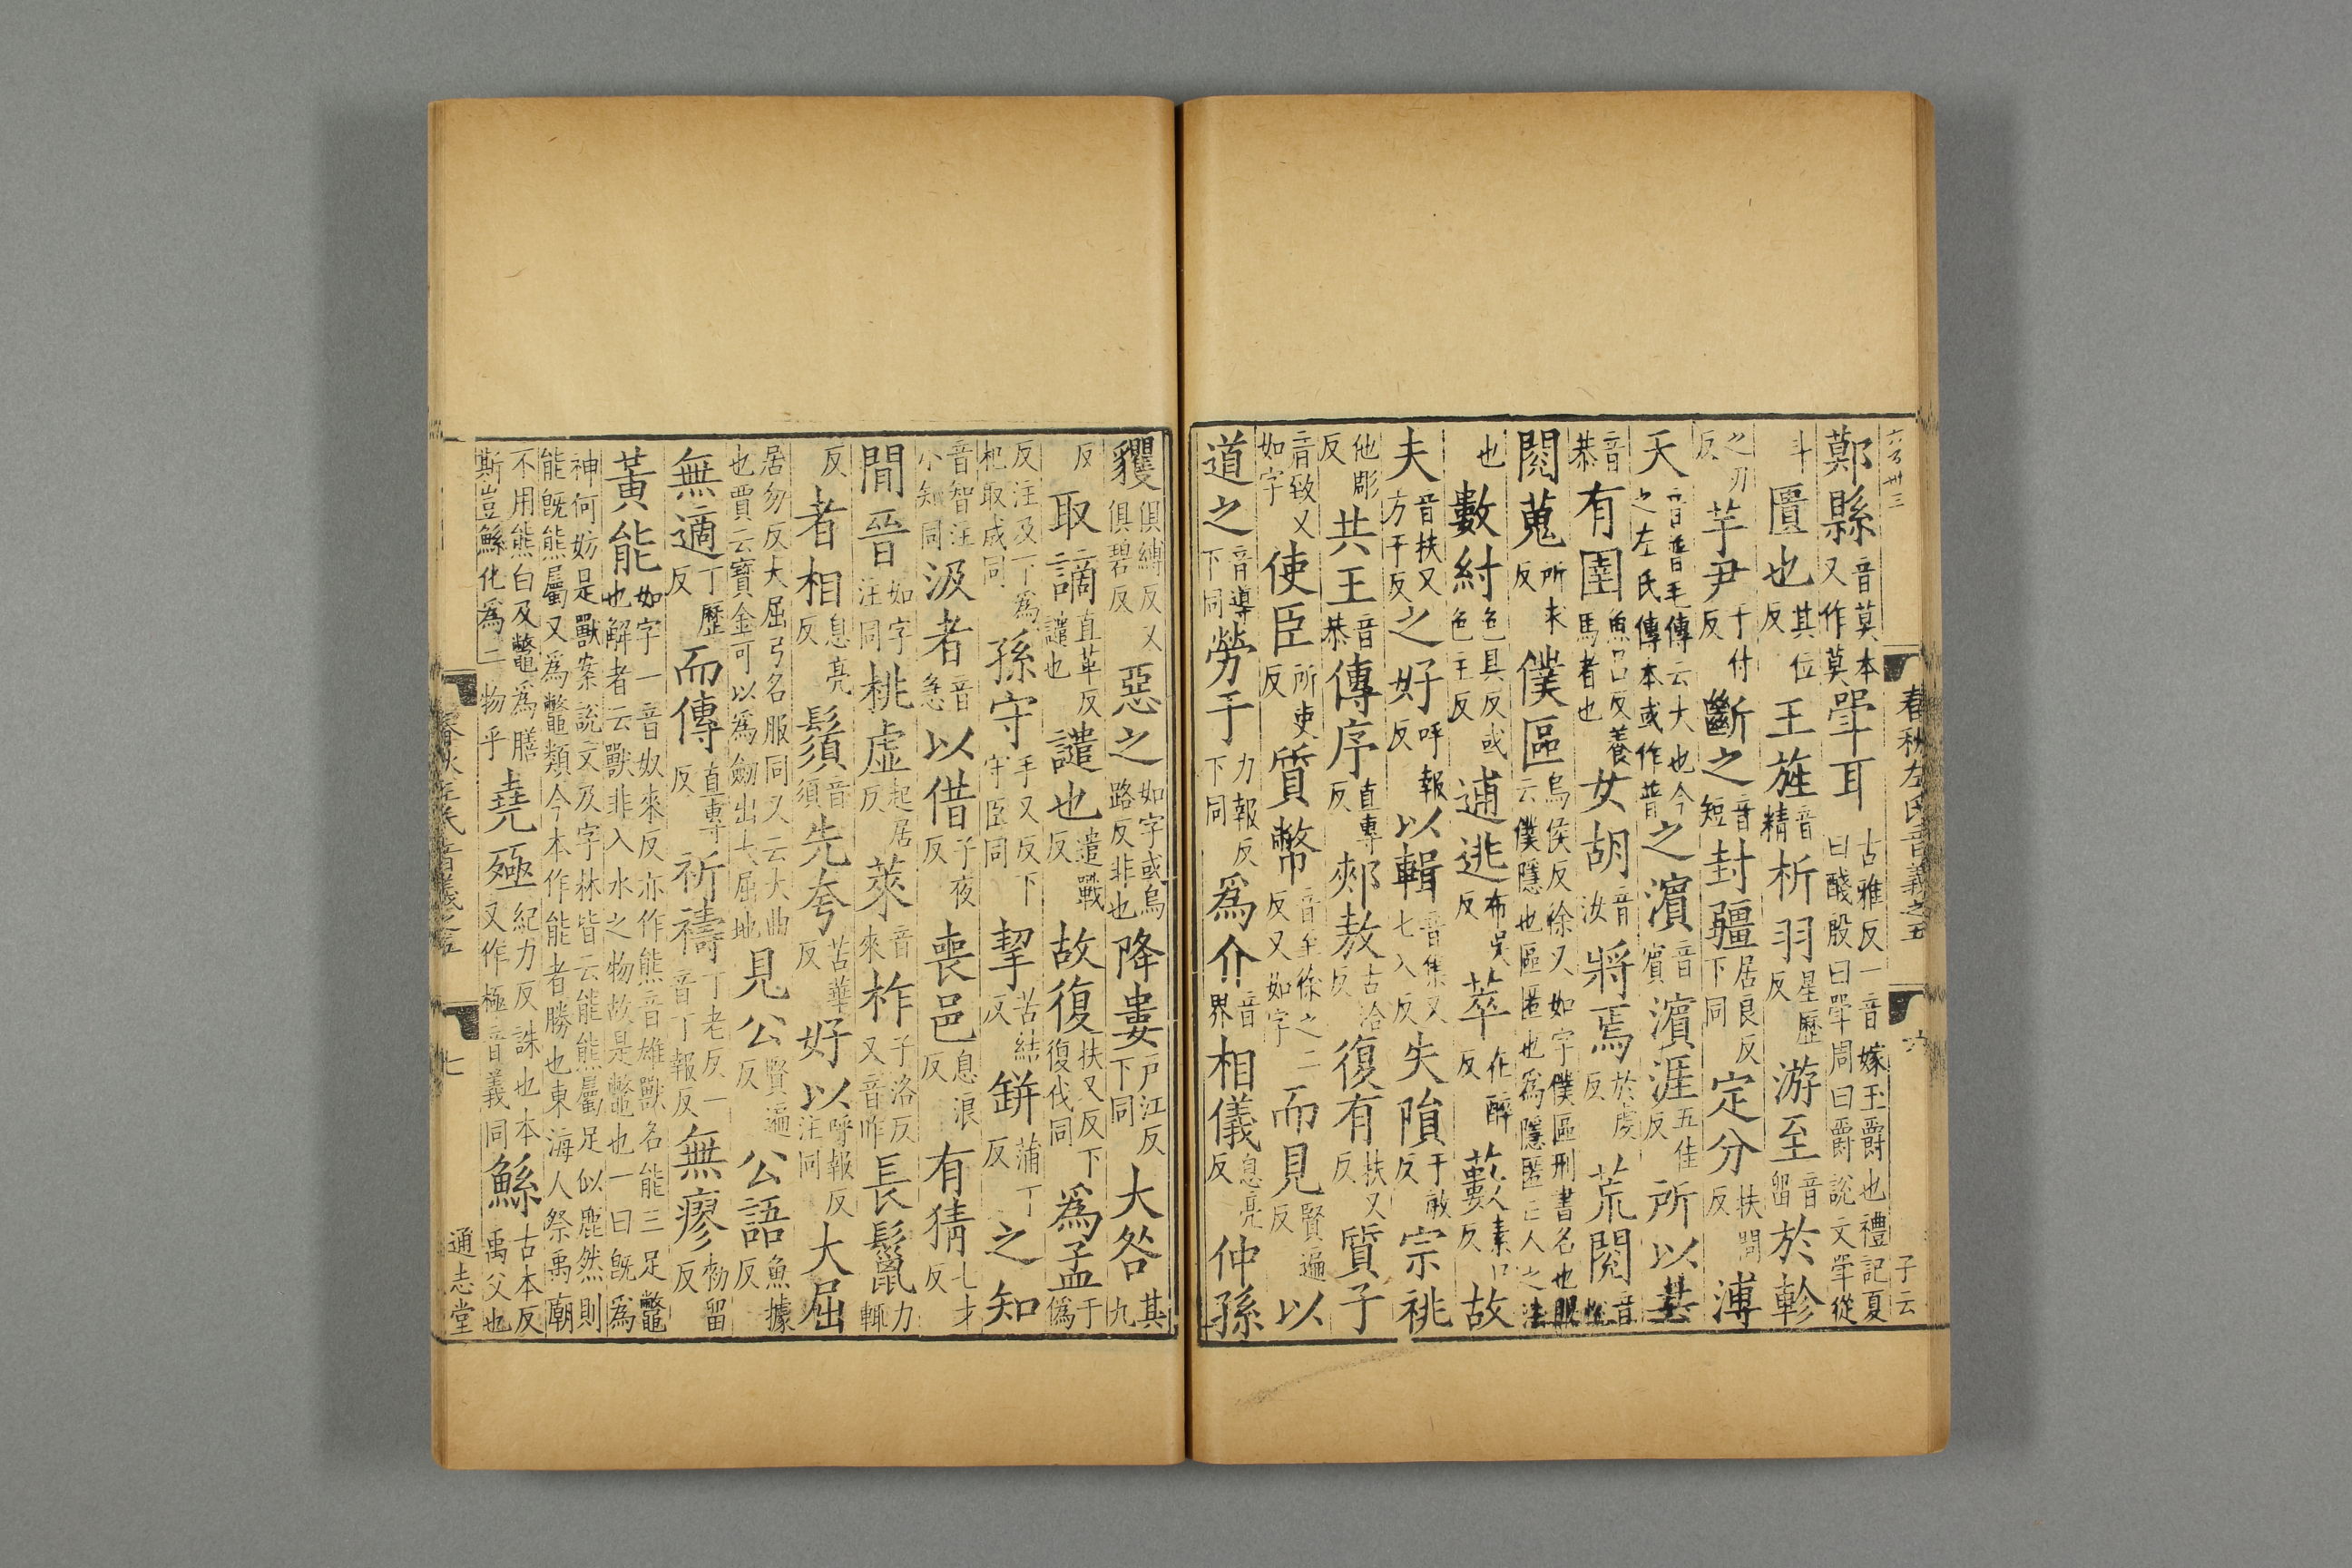 六百卅三 春秋左氏音義之五 六 子云
鄚縣音莫本又作莫斝耳古雅反一音嫁玉爵也禮記夏曰醆殷曰斝周曰爵說文斝從
斗匱也其位反王旌音精析羽星歷反游至音留於軫
之刃反芋尹于付反斷之音短封疆居良反下同定分扶問反溥
天音普毛傳云大也今之左氏傳本或作普之濱音賓濱涯五佳反所以共
音恭有圉魚呂反養馬者也女胡音汝將焉於虔反荒閱音悅
閱蒐所求反僕區烏侯反徐又如字僕區刑書名也服云僕隱也區匿也為隱匿亡人之法
也數紂色具反或色主反逋逃布吳反萃在醉反藪素口反故
夫音扶又方于反之好呼報反以輯音集又七入反失隕于敏反宗祧
他彫反共王音恭傳序直專反郟敖古洽反復有扶又反質子
音致又如字使臣所吏反質幣音至徐之二反又如字而見賢遍反以
道之音導下同勞于力報反下同為介音界相儀息亮反仲孫
貜俱縛反又俱碧反惡之如字或烏路反非也降婁戶江反下同大咎其九
反取謫直革反譴也譴也遣戰反故復扶又反下復伐同為孟于偽
反注及丁為杞取成同孫守手又反下守臣同挈苦結反缾蒲丁反之知
音智注小知同汲者音急以借子夜反喪邑息浪反有猜七才反
閒晉如字注同桃虛起居反萊音來柞子洛反又音昨長鬛力輒
反者相息亮反鬚音須先夸苦華反好以呼報反注同大屈
居勿反大屈弓名服同又云大曲也賈云寶金可以為劒出大屈地見公賢遍反公語魚據反
無適丁歷反而傳直專反祈禱丁老反一音丁報反無瘳勑留反
黃能如字一音奴來反亦作熊音雄獸名能三足鼈也解者云獸非入水之物故是鼈也一曰既為
神何妨是獸案說文及字林皆云能熊屬足似鹿然則能既熊屬又為鼈類今本作能者勝也東海人祭禹廟
不用熊白及鼈為膳斯豈鯀化為二物乎堯殛紀力反誅也本又作極音義同鯀古本反禹父也
春秋左氏音義之五 七 通志堂